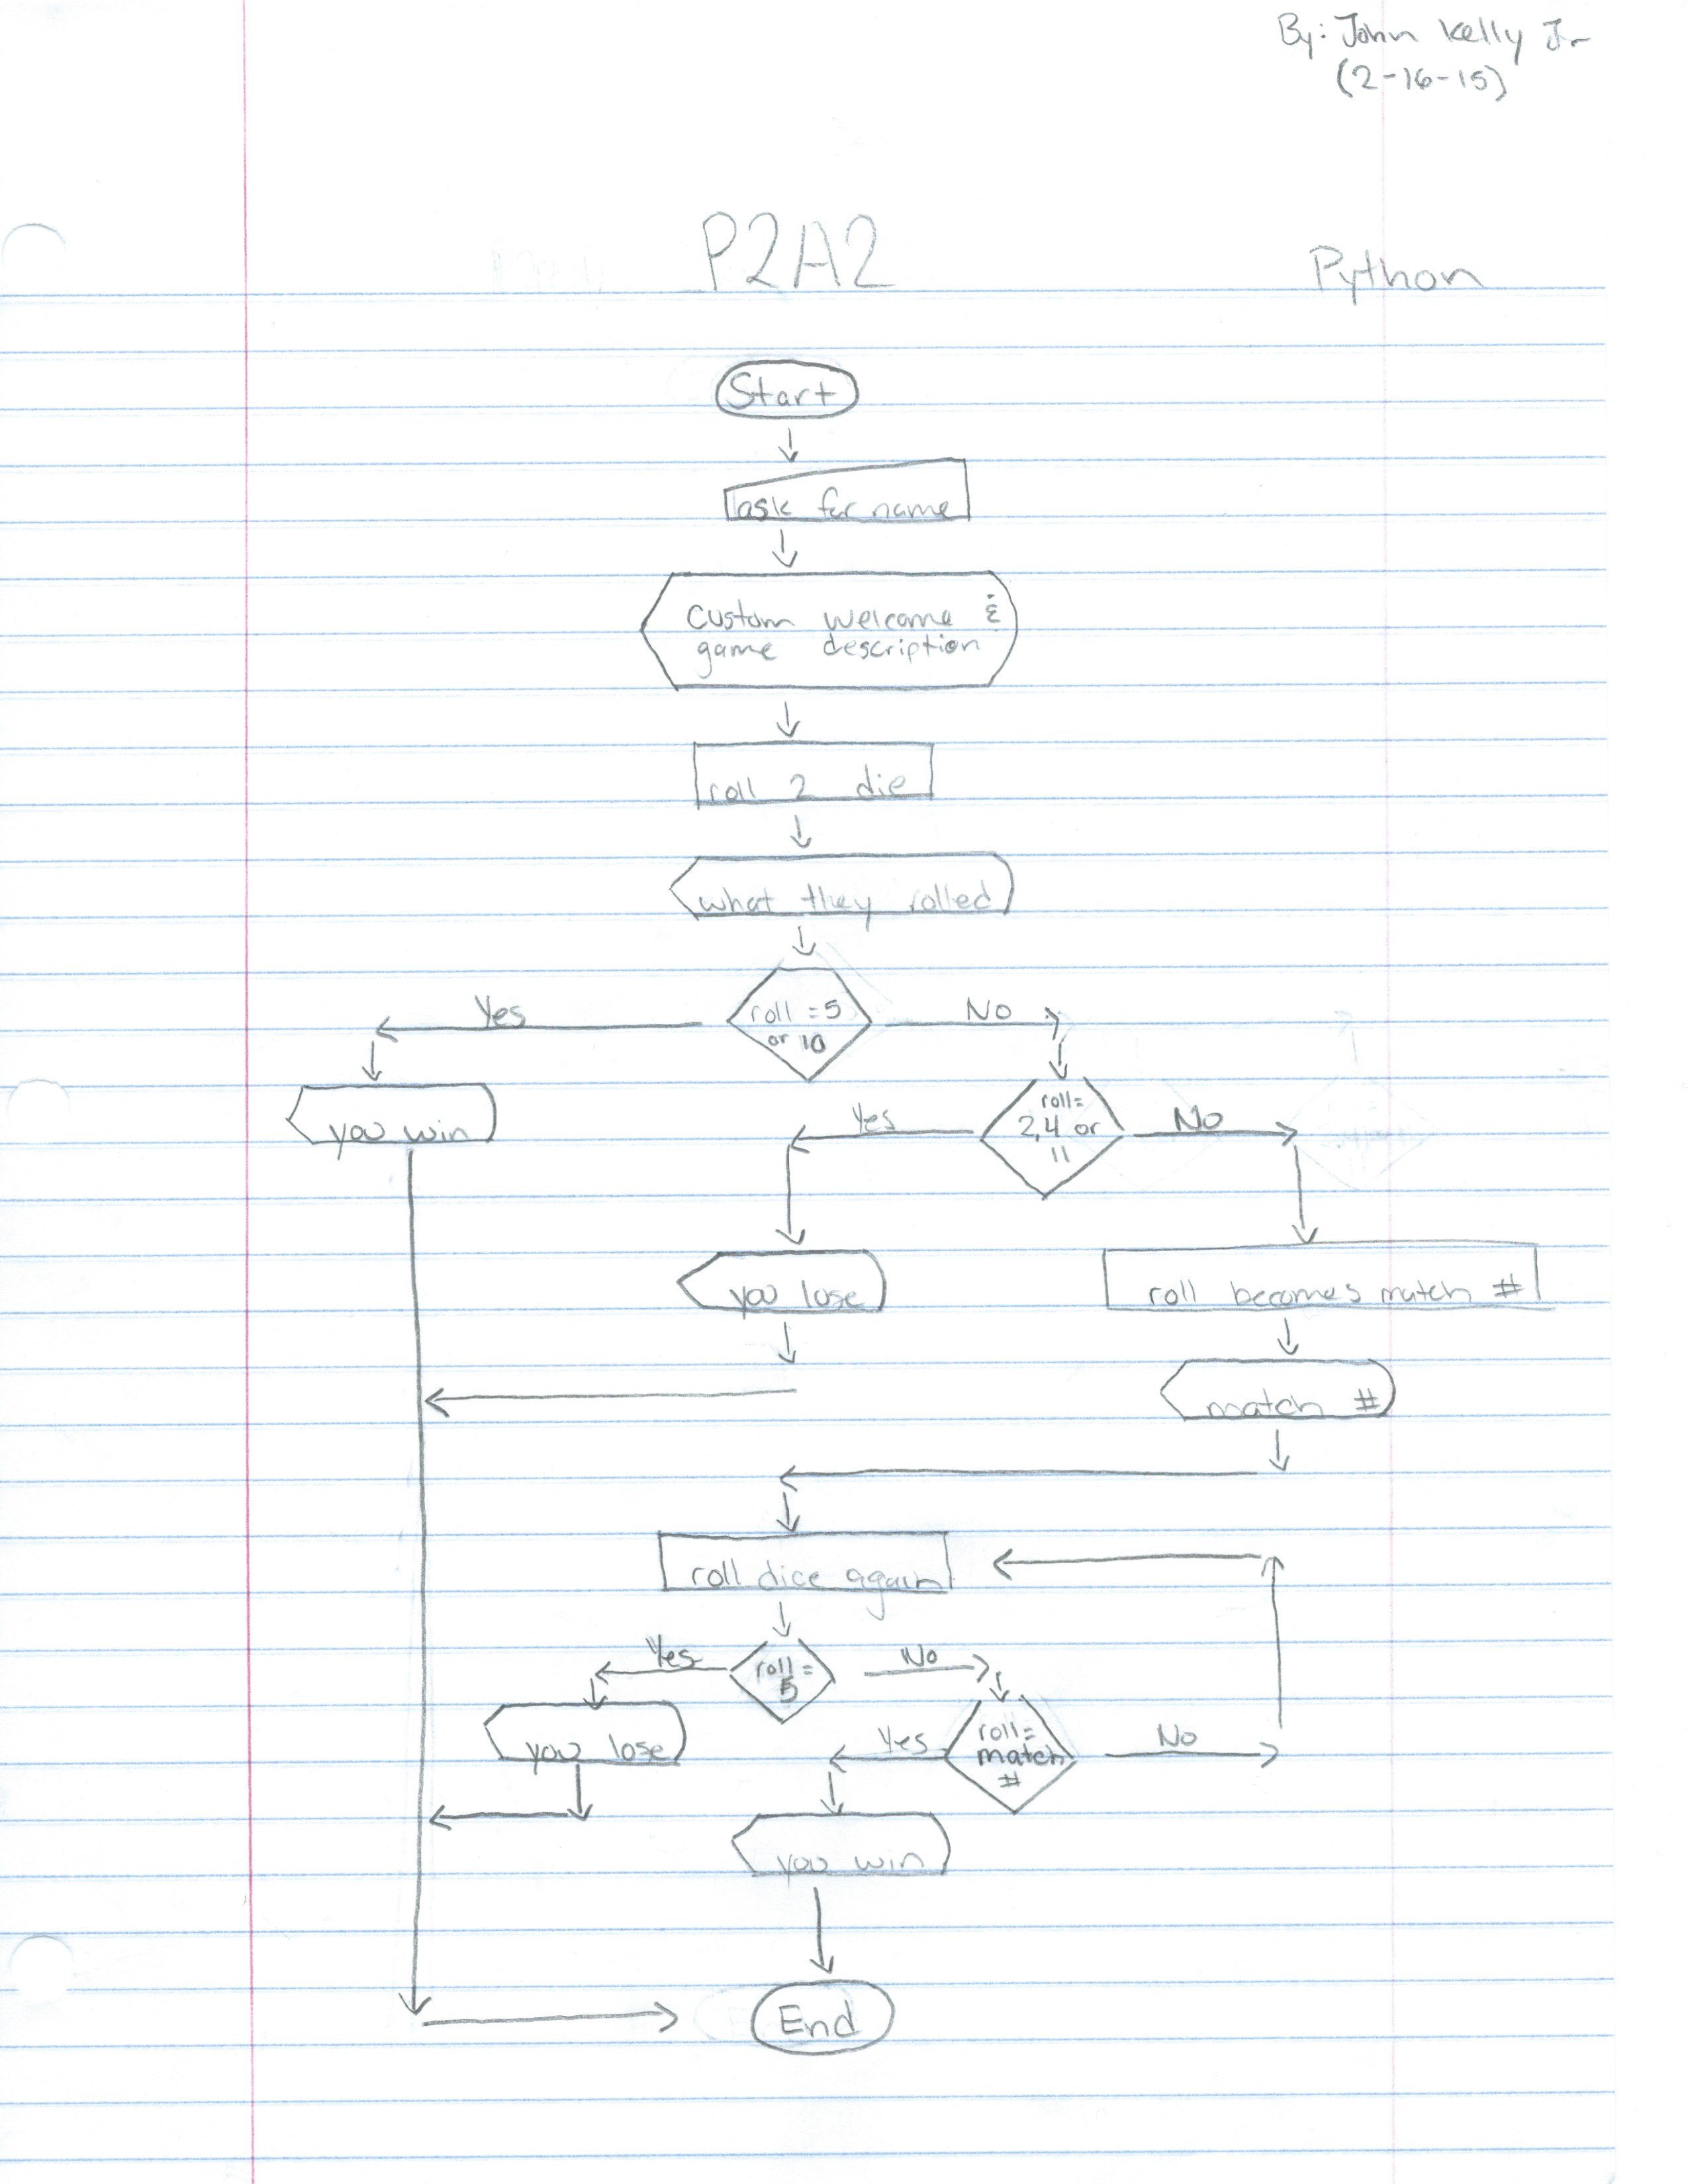 By: John Kelly Jr
(2-16-15)
P2A2
Python
Start
ask for name
Custom Welcome &
game description
roll 2 die
what they rolled
roll = 5
or 10
Yes
No
you win
roll=
2,4 or
11
Yes
No
you lose
roll becomes match #
match #
roll dice again
roll =
5
Yes
No
you lose
roll=
match
#
Yes
No
you win
End